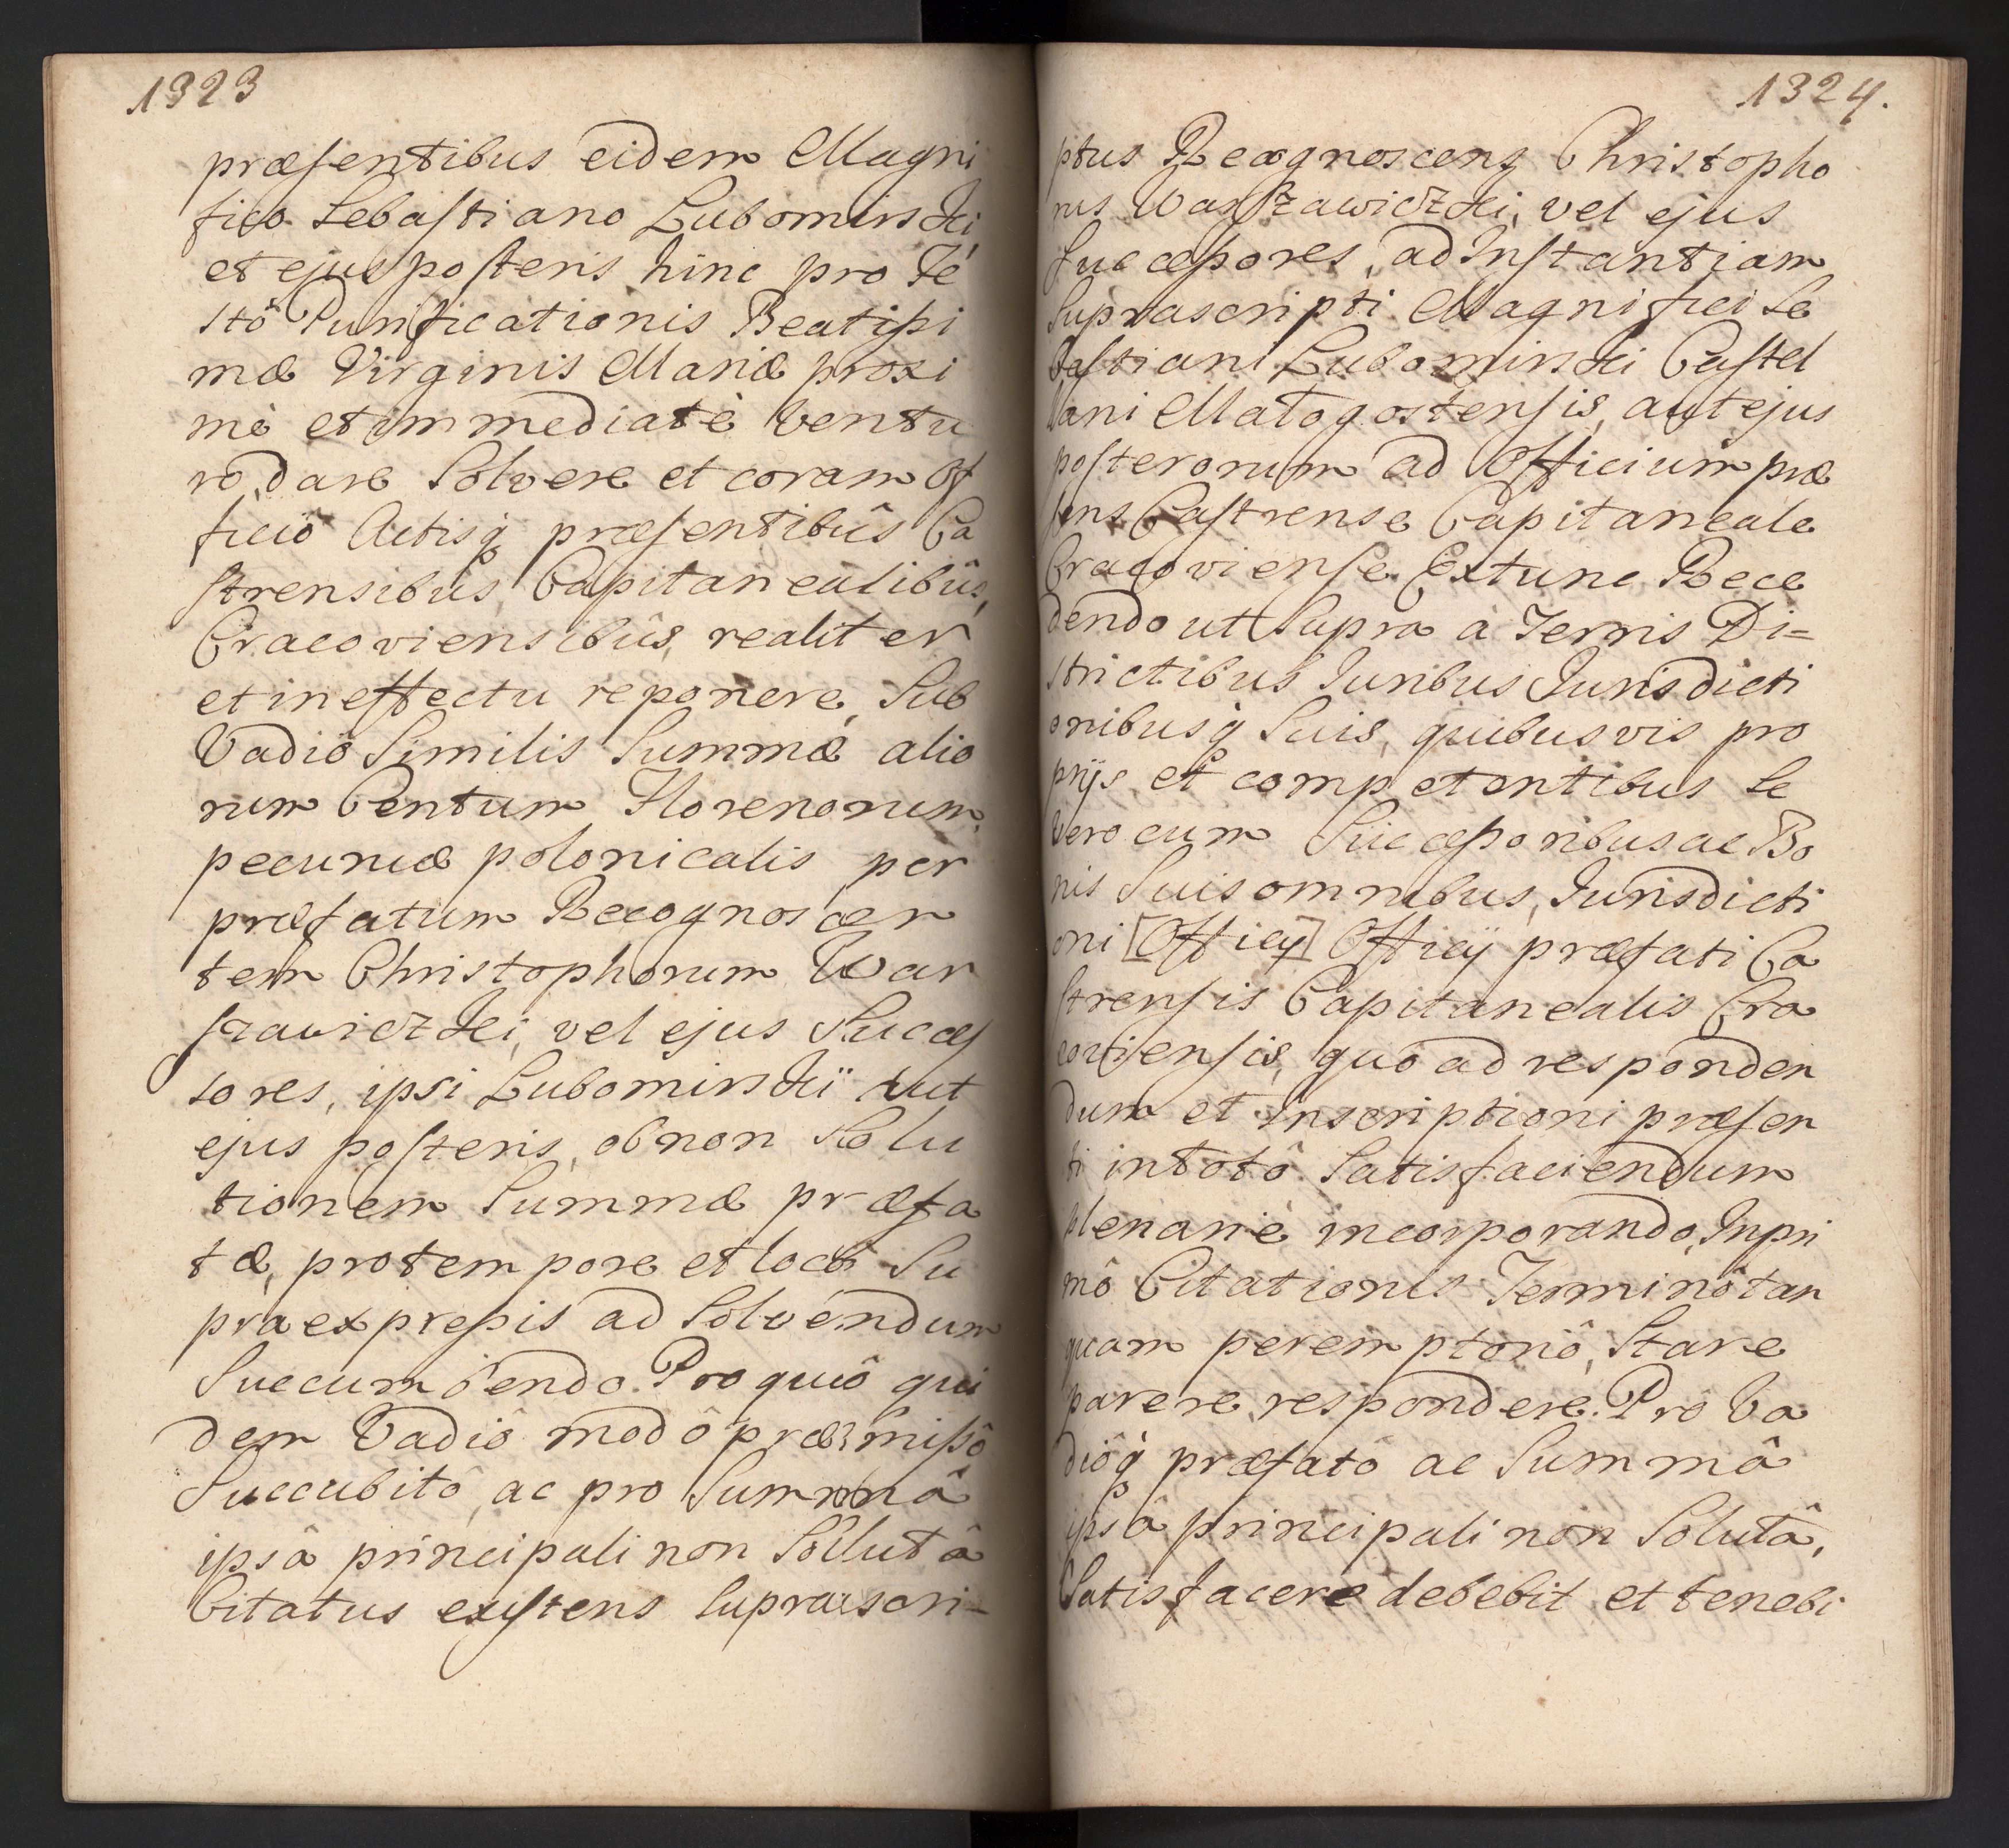 1323
præſentibus eidem Magni
fico Sebaſtiano Lubomirski
et ejus poſteris hinc pro Fe
stô Purificationis Beatiſsi
mæ Virginis Mariæ proxi
mè et immediatè ventu
ro, dare Solvere et coram Of
ficiô Actisq́ præſentibûs Ca
ſtrensibûs, Capitanealibûs,
Cracoviensibûs, realiter
et in effectu reponere, Sub
Vadiô Similis Summæ alio
rum Centum Florenorum
pecuniæ polonicalis, per
præfatum Recognoscen
tem Christophorum War
ſzawiczki, vel ejus Succeſ
sores, ipsi Lubomirskii aut
ejus poſteris, ob non Solu
tionem Summæ præfa
tæ, pro tempore et loco Su
pra expreſsis ad Solvendum
Succumbendo. Pro quô qui
dem Vadiô modô præmiſsô
Succubitô, ac pro Summâ
ipsâ principali non Solutâ
Citatus exiſtens Suprascri-
1324.
ptus Recognoscens Christopho
rus Warſzawiczki, vel ejus
Succeſsores, ad Inſtantiam
Suprascripti Magnifici Se
baſtiani Lubomirski Caſtel
lani Małogoſtenſis, aut ejus
poſterorum ad Officium præ
ſens Caſtrense Capitaneale
Cracovienſe. Extunc Rece
dendo ut Supra à Terris Di=
strictibus Iuribus Iurisdicti
onibusq́ Suis, quibusvis pro
prijs et competentibus Se
vero cum Succeſsoribus ac Bo
nis Suis omnibus, Iurisdicti
oni [Officij] Officij præfati Ca
ſtrenſis Capitanealis Cra
covienſis, quô ad responden
dum et Inscriptioni præſen
ti in totô Satisfaciendum
plenariè incorporando, In pri
mô Citationis Terminô tan
quam peremptoriô, Stare
parere respondere. Prô Va
diôq́ præfatô ac Summâ
ipsâ principali non Solutâ,
Satisfacere debebit et tenebi